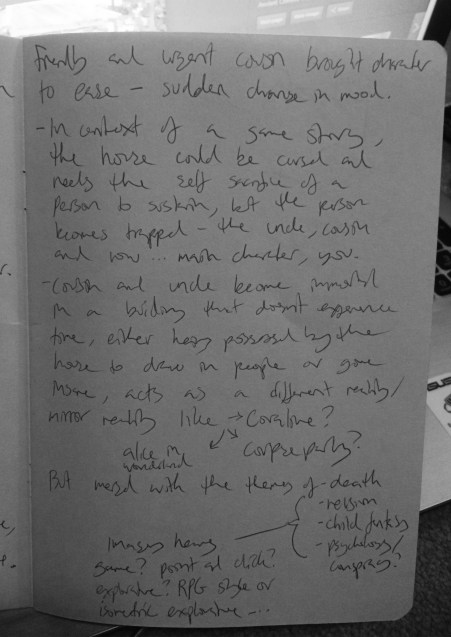 Friendly and urgent cousin brought character
to ease – sudden change in mood.
- In context of a game story,
the house could be cursed and
needs the self sacrifice of a
person to sustain, but the person
becomes trapped – the uncle, cousin
and now ... main character, you.
- Cousin and uncle become immortal
in a building that doesn't experience
time, either being possessed by the
house to draw in people or gone
insane, acts as a different reality/
mirror reality like → Coraline?
alice in wonderland
corpse party?
But merged with the themes of - death
- religion
- child
- psychology/
conspiracy?
Imagery heavy
game? point and click?
explorative? RPG style or
isometric explorative ....